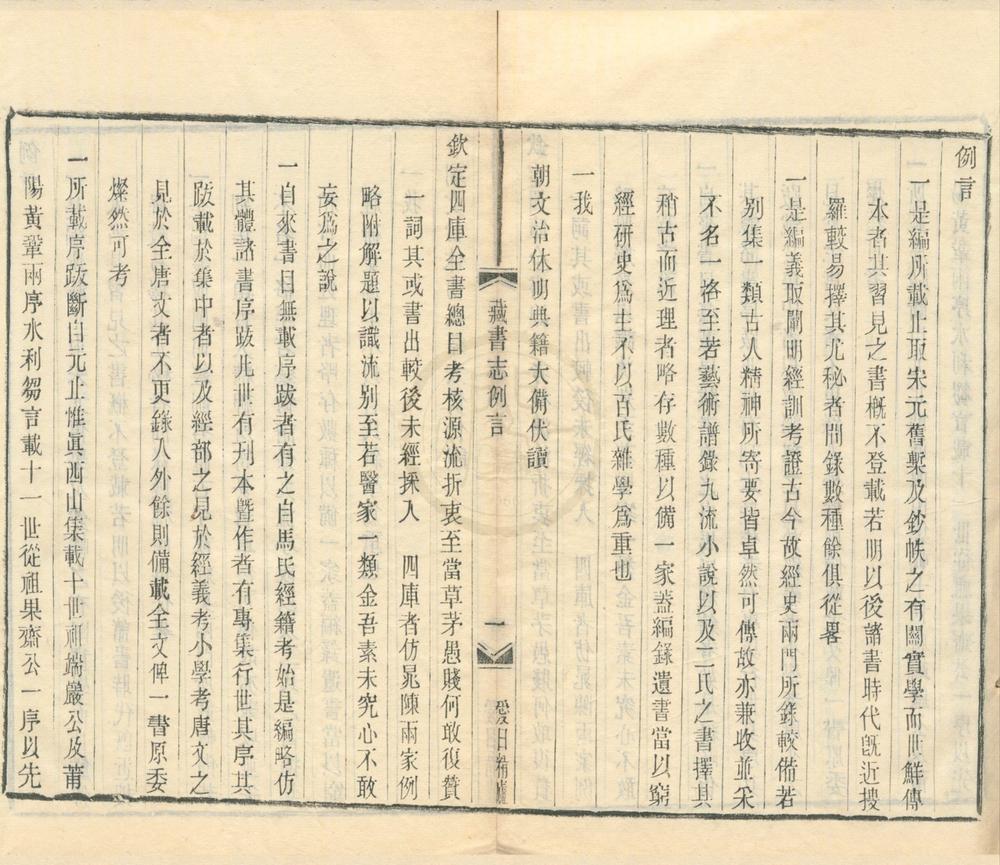 例言
一是編所載止取宋元舊槧及鈔帙之有關實學而世鮮傳
本者其習見之書槪不登載若明以後諸書時代旣近搜
羅較易擇其尤秘者閒錄數種餘俱從畧
一是編義取闡明經訓考證古今故經史兩門所錄較備若
別集一類古人精神所寄要皆卓然可傳故亦兼收並采
不名一洛至若藝術譜錄九流小說以及二氏之書擇其
稍古而近理者略存數種以備一家葢編錄遺書當以窮
經研史爲主不以百氏雜學爲重也
一我
朝文治休明典籍大備伏讀
藏書志例言
一
愛日精廬
欽定四庫全書總目考核源流折衷至當草茅愚賤何敢復贊
一詞其或書出較後未經採入　四庫者仿晁陳兩家例
略附解題以識流別至若醫家一類金吾素未究心不敢
妄爲之說
一自來書目無載序跋者有之自馬氏經籍考始是編略仿
其體諸書序跋凡世有刊本曁作者有專集行世其序其
跋載於集中者以及經部之見於經義考小學考唐文之
見於全唐文者不更錄入外餘則備載全文俾一書原委
燦然可考
一所載序跋斷自元止惟眞西山集載十世祖端巖公及莆
陽黃鞏兩序水利芻言載十一世從祖果齋公一序以先